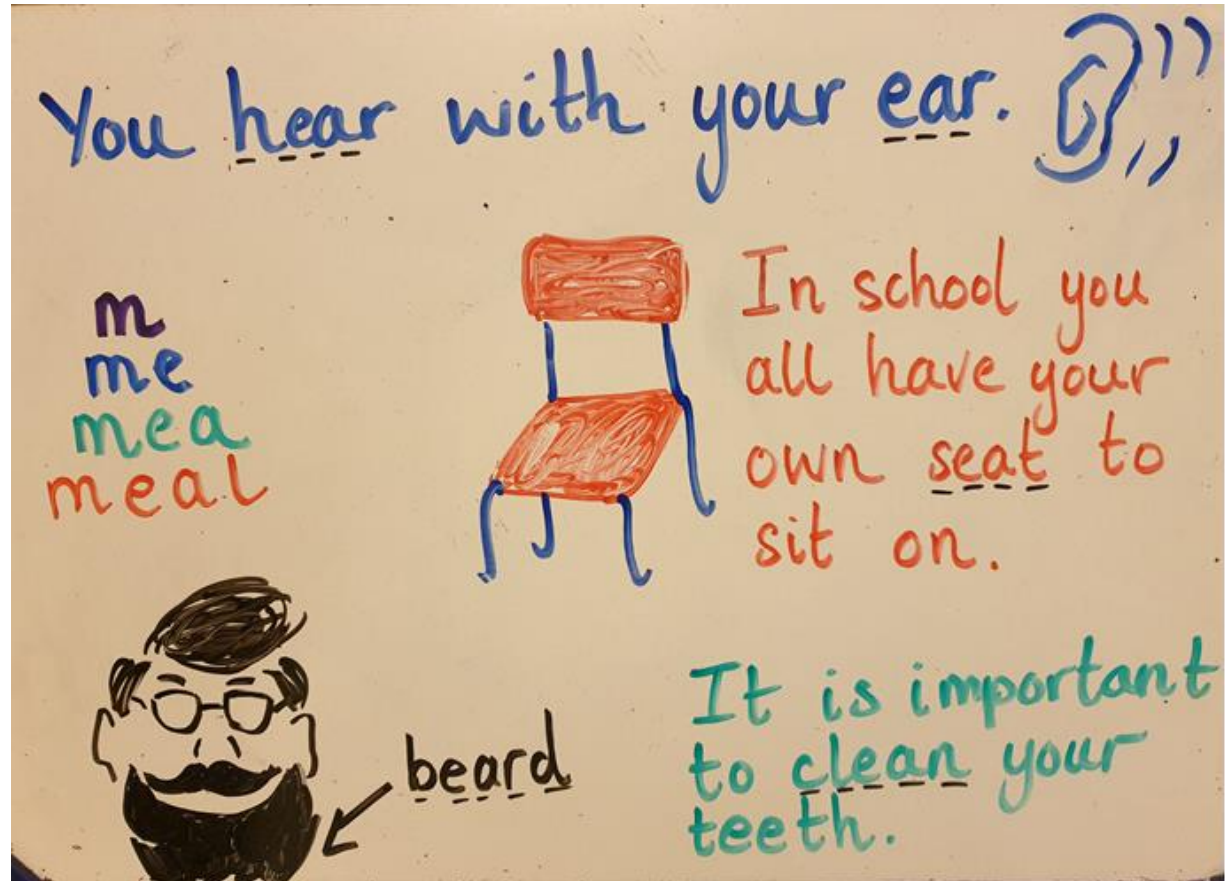 You hear with your ear.
m
me
mea
meal
In school you
all have your
own seat to
sit on.
beard
It is important
to clean your
teeth.